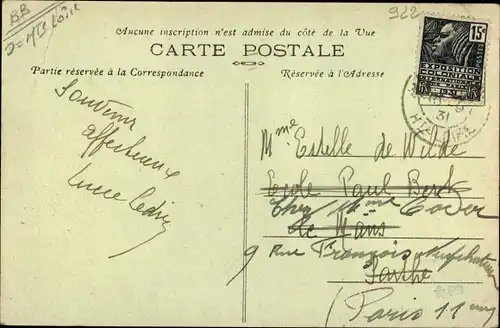 BB
D Hte Loire
922
Aucune inscription n'est admise du côté de la Vue
CARTE POSTALE
Partie réservée à la Correspondance
Réservée à l'Adresse
15c
POSTES
EXPOSITION
COLONIALE
INTERNATIONALE
PARIS 1931
31
Hte LOIRE
Souvenir
affectueux
Mme Estelle de Wilde
Ecole Paul Bert
Chez Mme
Le Mans
9 Rue François Neufchateau
Sarthe
(Paris 11eme